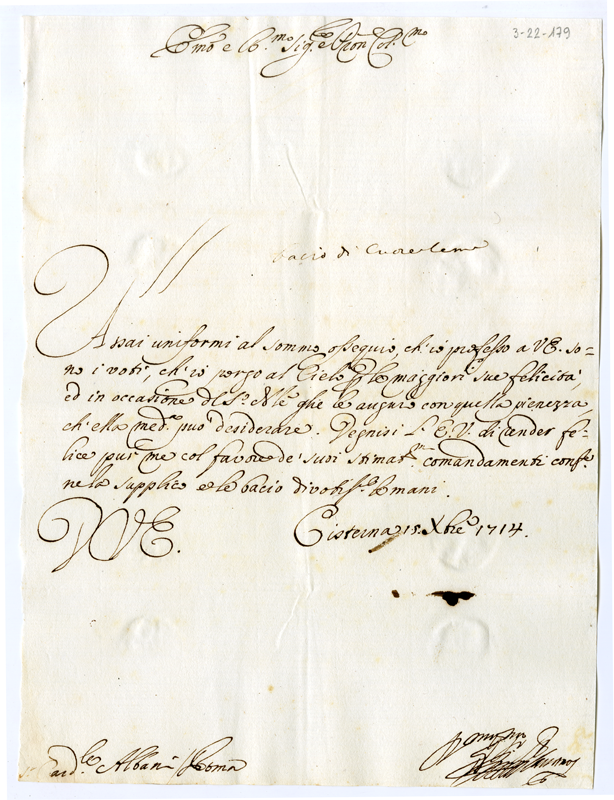 3-22-179
Em̃o e R.mo Sig.re e Pron Col.mo
bacio di Cuore le m
Assai uniformi al sommo ossequio, ch'io professo a VE. so-
no i voti, ch'io porgo al Cielo p le maggiori sue felicità,
ed in occasione del S. Nle ghe le auguro con quella pienezza,
ch'ella med.a può desiderare. Degnisi L'E.V. di render fe-
lice pur me col favore de' suoi stimat.mi comandamenti conf.e
ne la supplico e le bacio divotiss.e le mani.
D VE.
Cisterna 15. Xbre 1714.
S.r Card.le Albani Roma